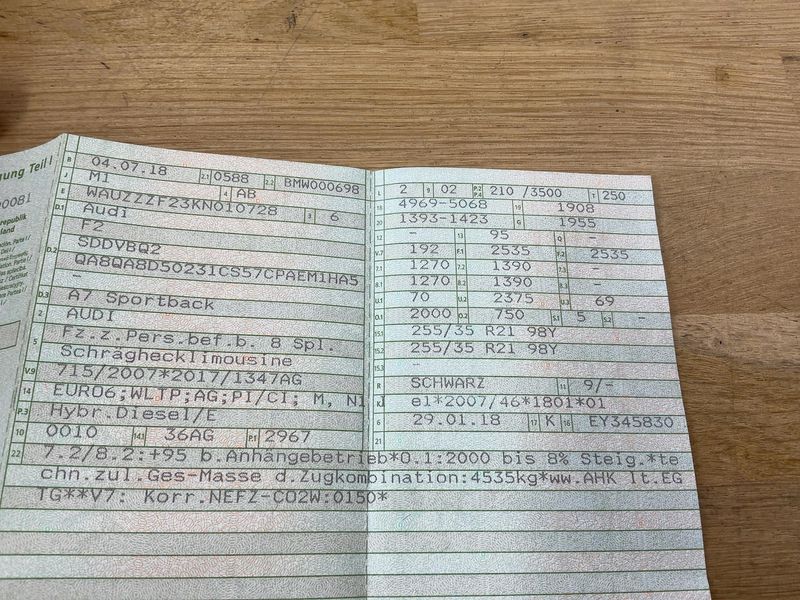 gung Teil I
B 04.07.18 2.1 0588 2.2 BMW000698
J M1 4 AB
E WAUZZZF23KN010728 3 6
D.1 Audi
D.2 F2
SDDVBQ2
QA8QA8D50231CS57CPAEM1HA5
-
D.3 A7 Sportback
2 AUDI
5 Fz.z.Pers.bef.b. 8 Spl.
Schräghecklimousine
V.9 715/2007*2017/1347AG
14 EURO6;WLTP;AG;PI/CI; M, N1 I
P.3 Hybr.Diesel/E
10 0010 14.1 36AG P.1 2967
L 2 9 02 P.2 P.4 210 /3500 T 250
18 4969-5068 19 1908
20 1393-1423 G 1955
12 - 13 95 Q -
V.7 192 F.1 2535 F.2 2535
7.1 1270 7.2 1390 7.3 -
8.1 1270 8.2 1390 8.3 -
U.1 70 U.2 2375 U.3 69
O.1 2000 O.2 750 S.1 5 S.2 -
15.1 255/35 R21 98Y
15.2 255/35 R21 98Y
15.3 -
R SCHWARZ 11 9/-
K e1*2007/46*1801*01
6 29.01.18 17 K 16 EY345830
21
22 7.2/8.2:+95 b.Anhängebetrieb*O.1:2000 bis 8% Steig.*te
chn.zul.Ges-Masse d.Zugkombination:4535kg*ww.AHK lt.EG
TG**V7: Korr.NEFZ-CO2W:0150*